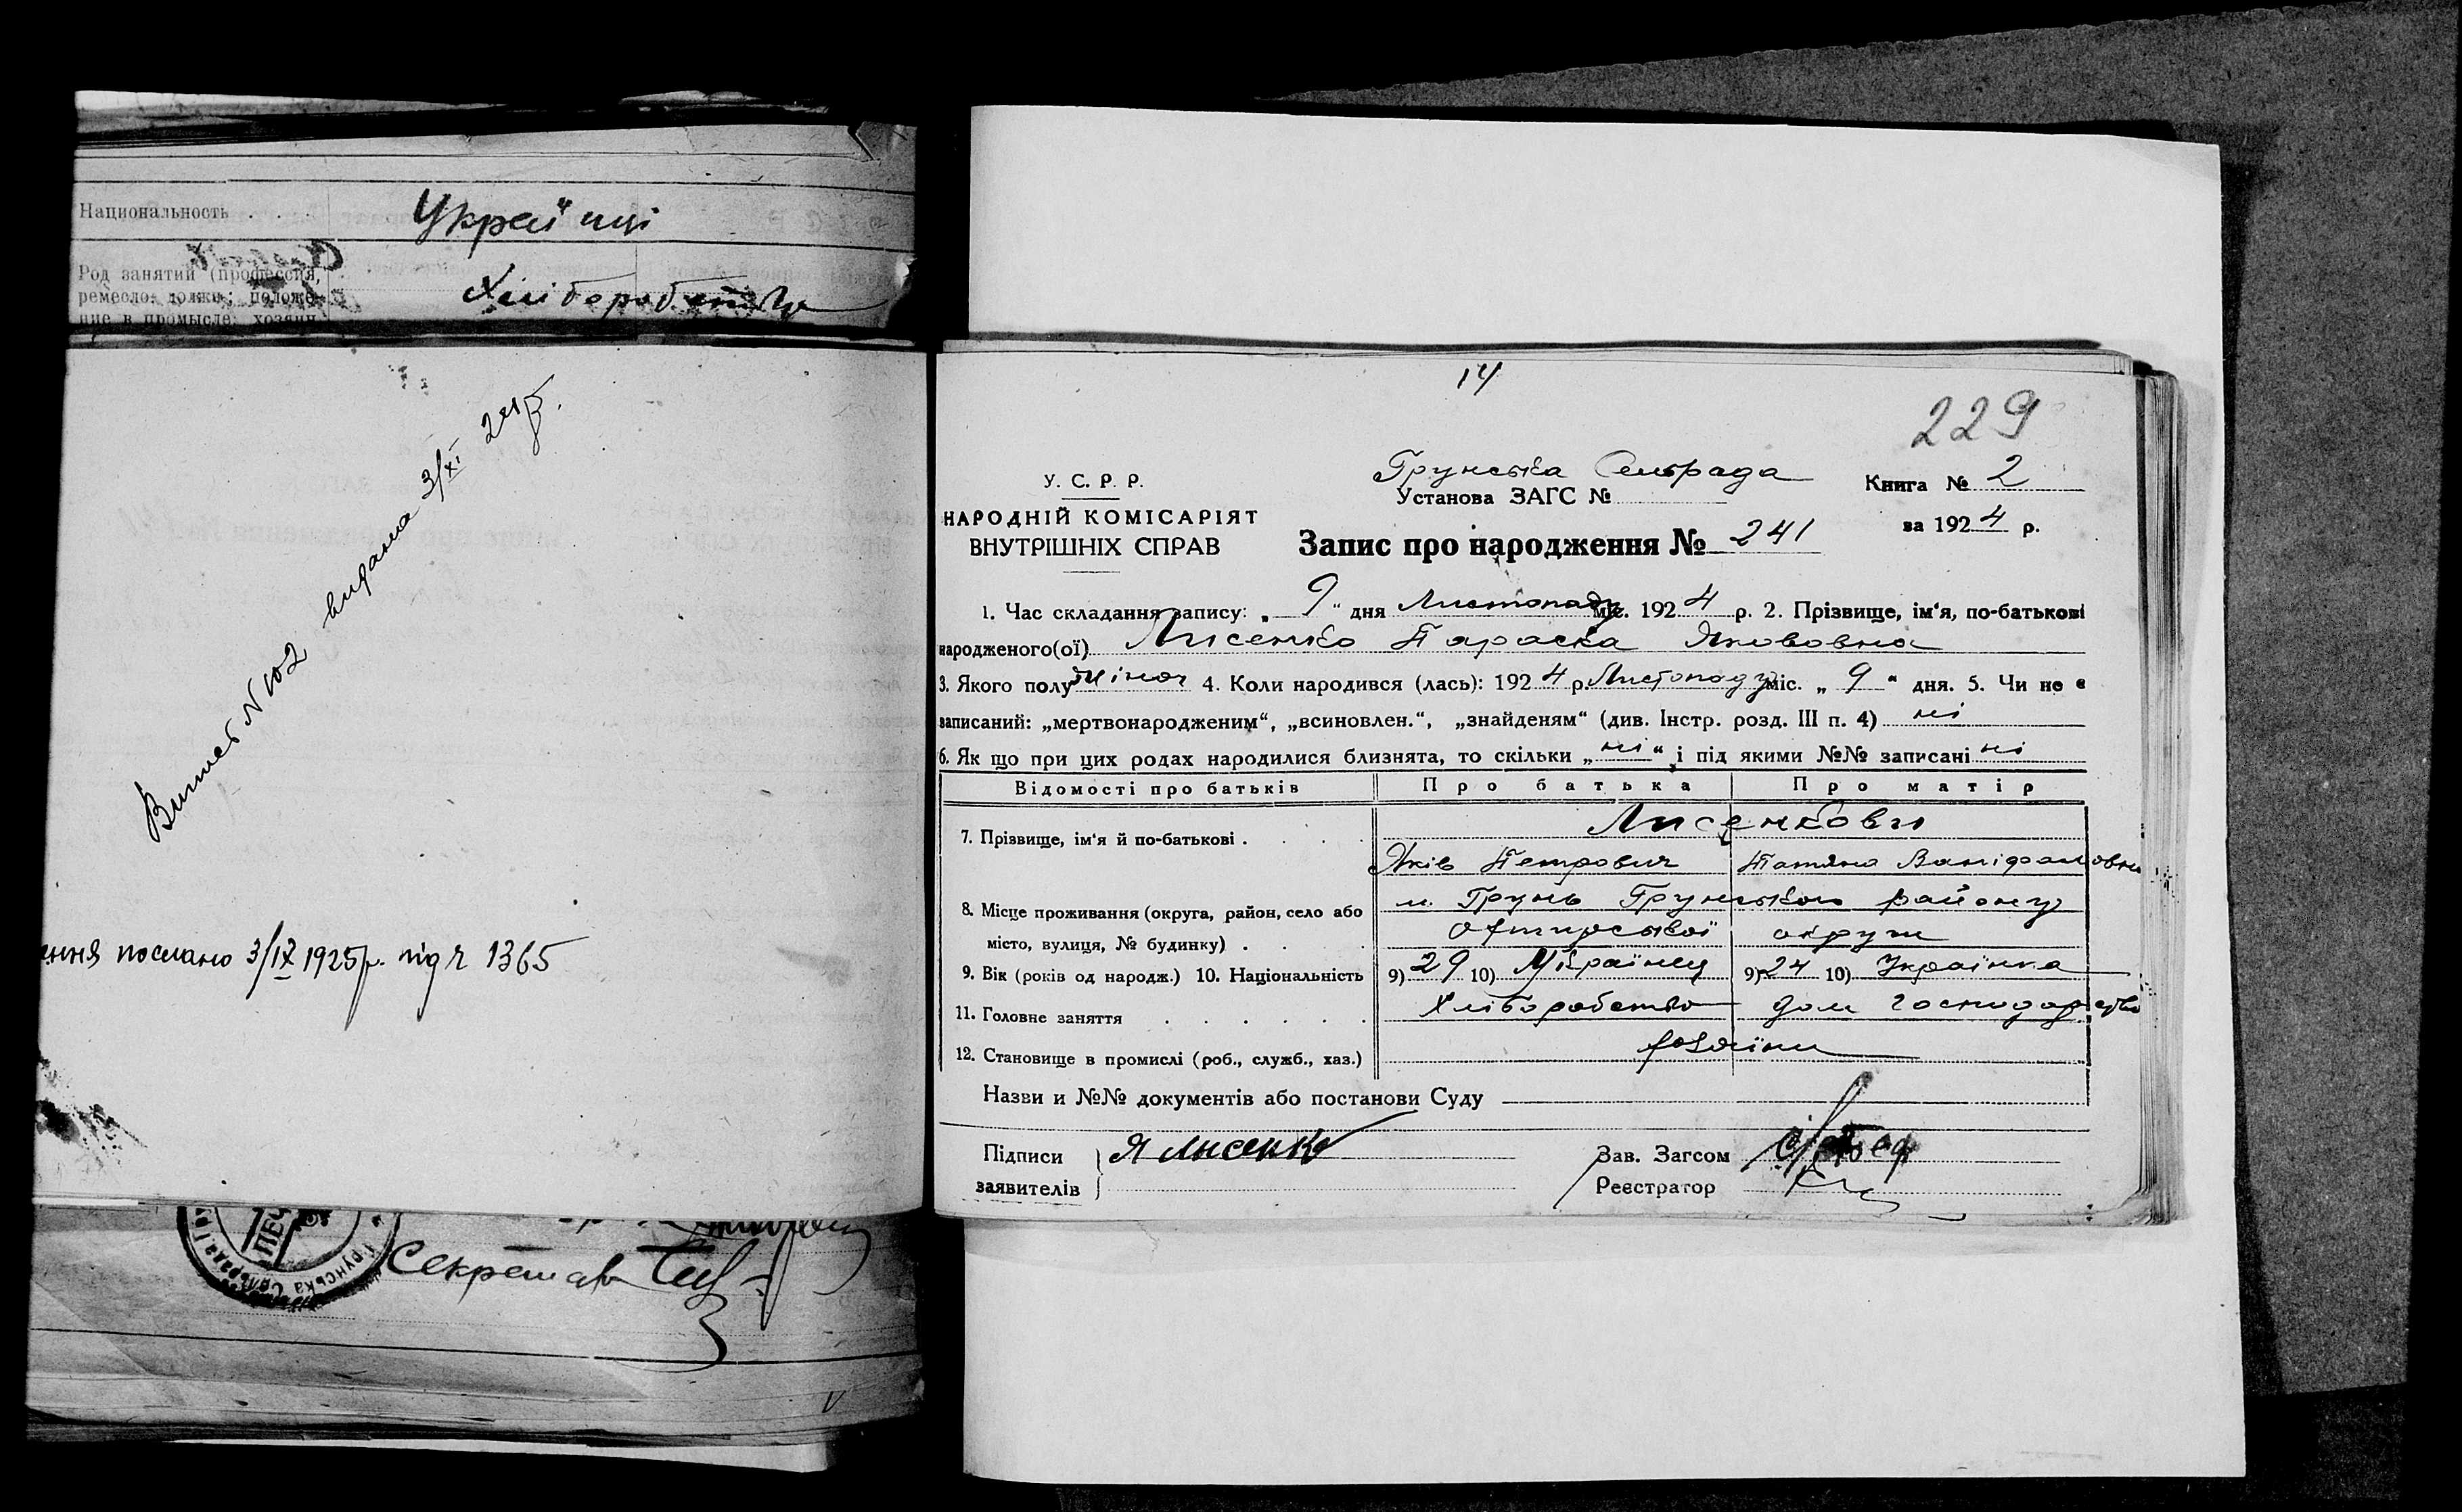 Национальность . . .
Українці
Род занятий (профессия,
ремесло, должн.; положе-
ние в промысле: хозяин,
Хліборобство
Витяг N 102 видана 3/XI 24р.
ення послано 3/IX 1925р. під ч 1365
Грунська Сельрада
ПЕЧ
Секретар
14
229
У. С. Р. Р.
НАРОДНІЙ КОМІСАРІЯТ
ВНУТРІШНІХ СПРАВ
Грунська Сельрада
Установа ЗАГС №
Запис про народження № 241
Книга № 2
за 1924 р.
1. Час складання запису: „ 9 " дня Листопаду міс. 1924 р. 2. Прізвище, ім'я, по-батькові
народженого(ої) Лисенко Параска Якововна
3. Якого полу жіноч 4. Коли народився (лась): 1924 р. Листопаду міс. „ 9 " дня. 5. Чи не є
записаний: „мертвонародженим", „всиновлен.", „знайденям" (див. Інстр. розд. III п. 4) ні
6. Як що при цих родах народилися близнята, то скільки „ ні " і під якими №№ записані ні
Відомості про батьків Про батька Про матір
7. Прізвище, ім'я й по-батькові . . . . .
Лисенкови
Яків Петрович Татяна
8. Місце проживання (округа, район, село або
місто, вулиця, № будинку) . . .
м. Грунь Грунського району
Охтирської округи
9. Вік (років од народж.) 10. Національність 9) 29 10) Українец 9) 24 10) Українка
11. Головне заняття . . . . . . Хліборобство дом господарство
12. Становище в промислі (роб., служб., хаз.) хозяїни
Назви и №№ документів або постанови Суду
Підписи
заявителів
Я Лисенко
Зав. Загсом
Реєстратор